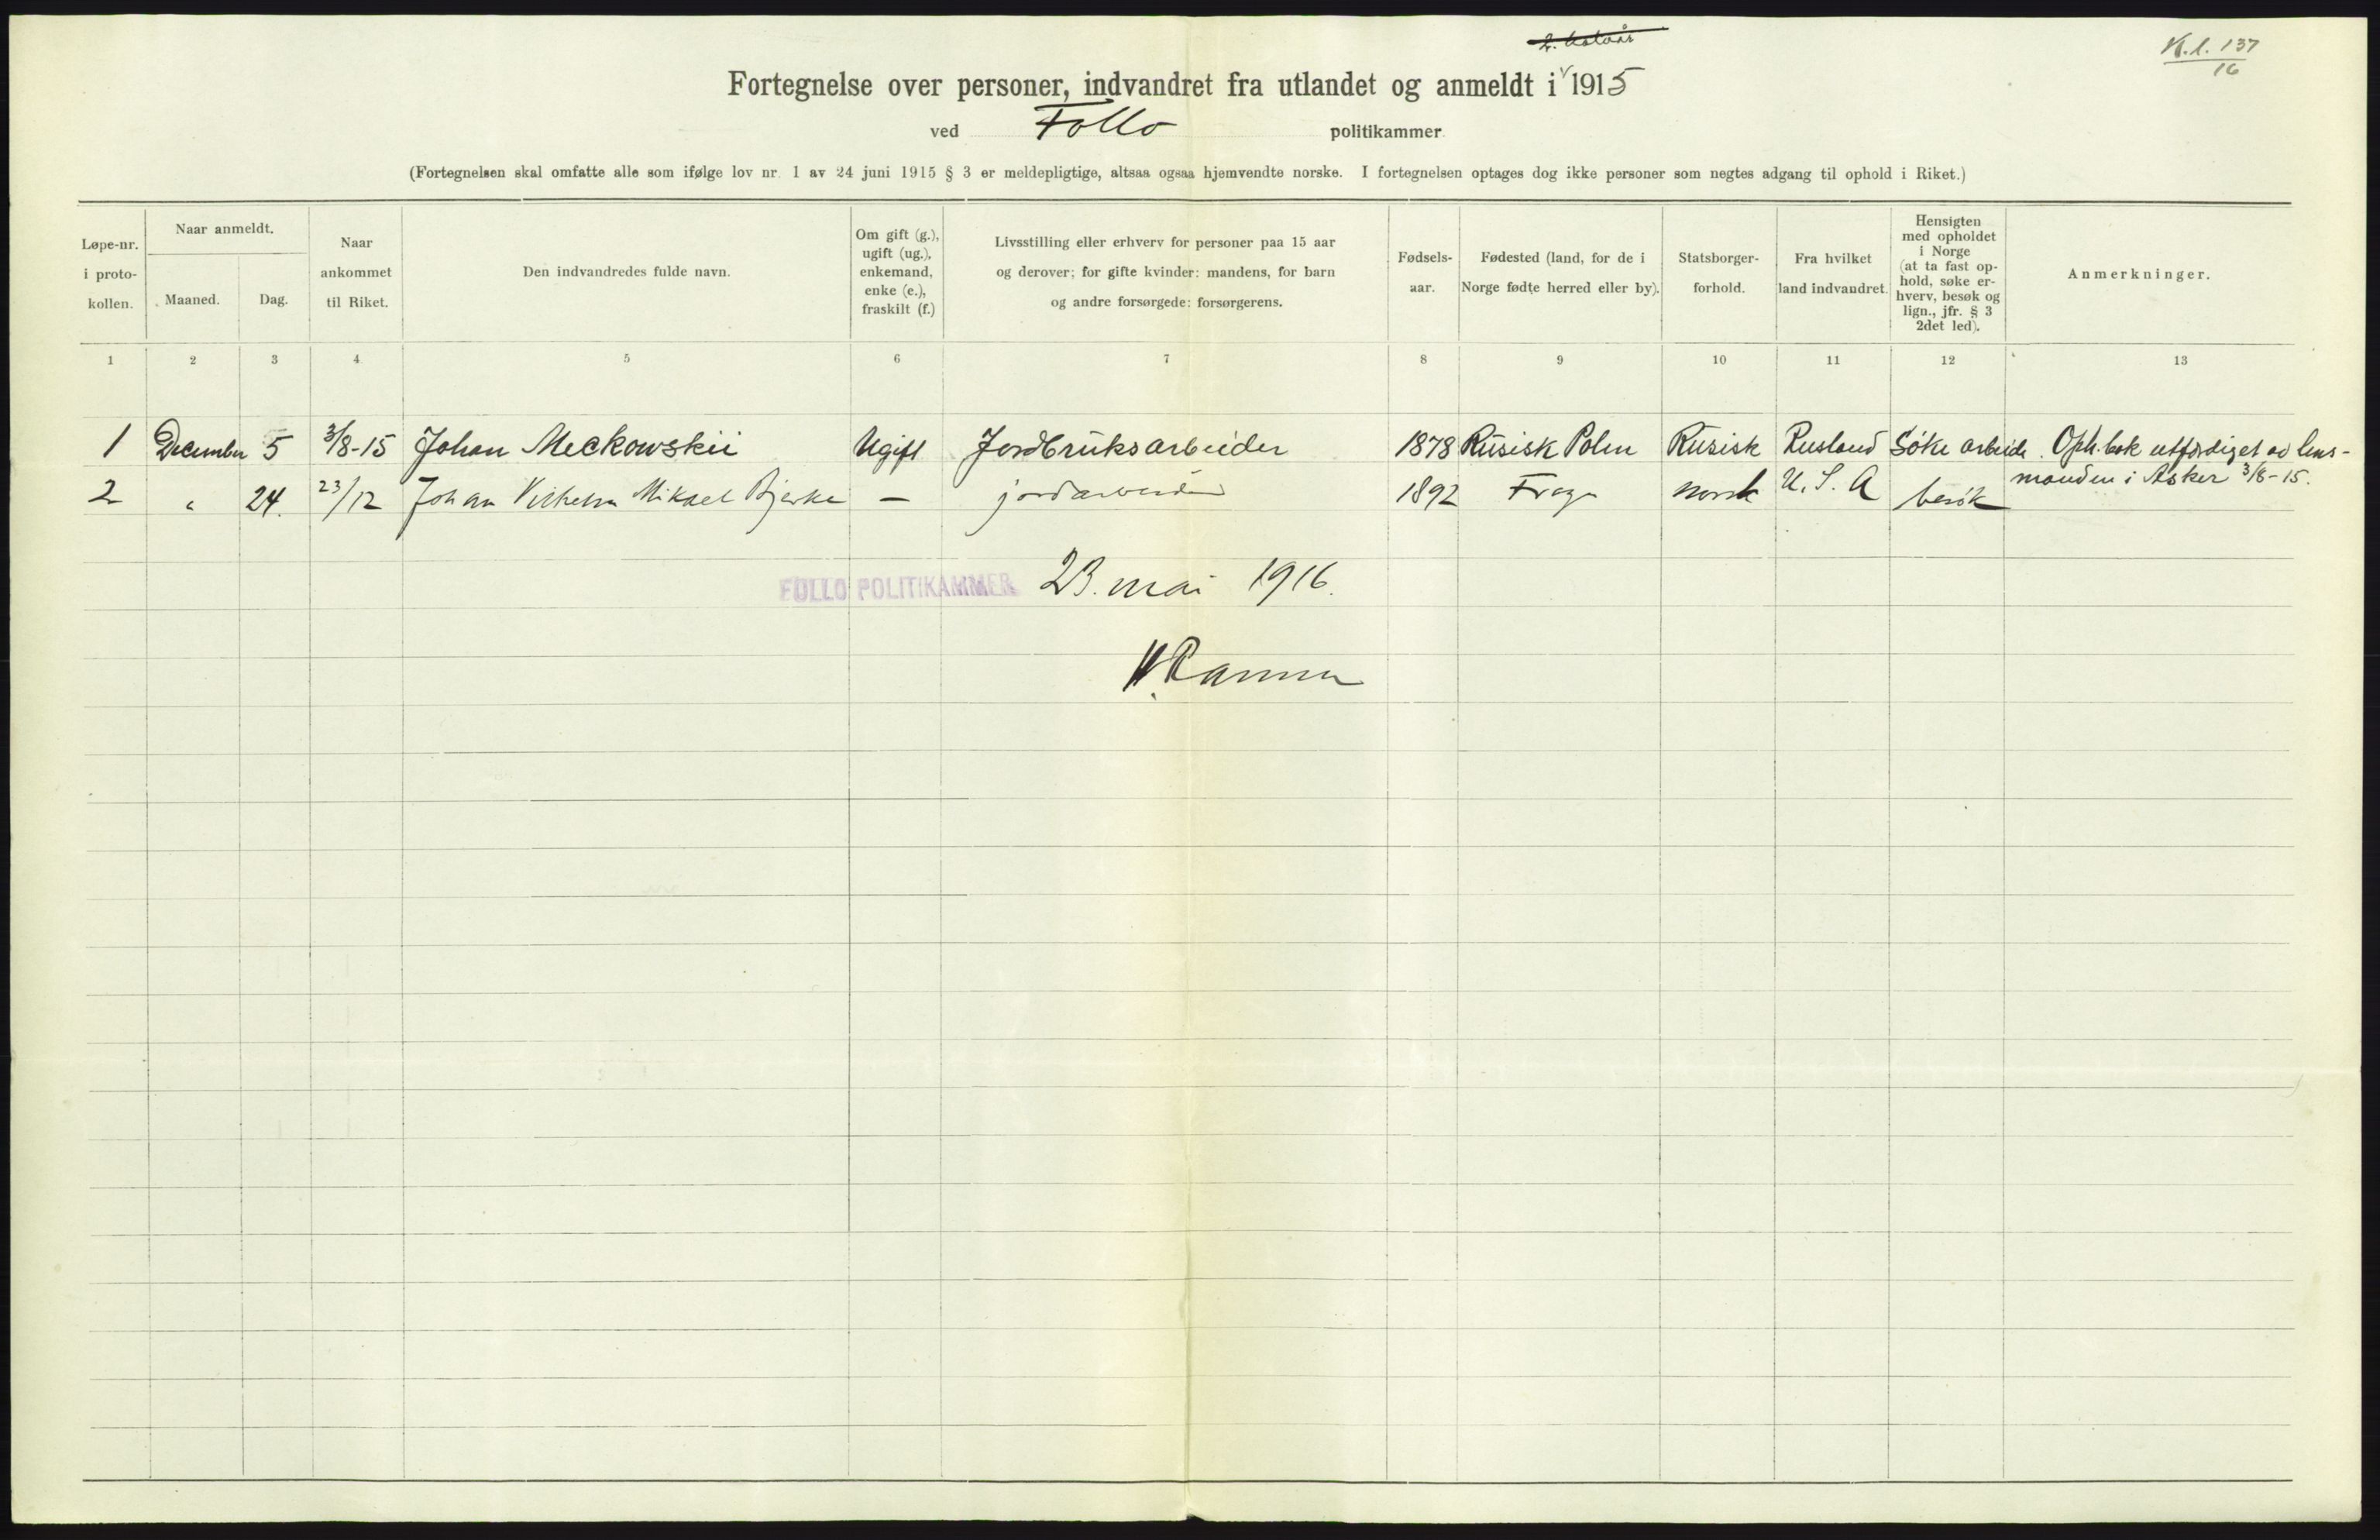 2. halvår
K.l. 137
16
Fortegnelse over personer, indvandret fra utlandet og anmeldt i 1915
ved Follo politikammer.
(Fortegnelsen skal omfatte alle som ifølge lov nr. 1 av 24 juni 1915 § 3 er meldepligtige, altsaa ogsaa hjemvendte norske. I fortegnelsen optages dog ikke personer som negtes adgang til ophold i Riket.)
Løpe-nr. i proto-kollen.
Naar anmeldt.
Maaned.
Dag.
Naar ankommet til Riket.
Den indvandredes fulde navn.
Om gift (g.), ugift (ug.), enkemand, enke (e.), fraskilt (f.)
Livsstilling eller erhverv for personer paa 15 aar og derover; for gifte kvinder: mandens, for barn og andre forsørgede: forsørgerens.
Fødsels-aar.
Fødested (land, for de i Norge fødte herred eller by).
Statsborger-forhold.
Fra hvilket land indvandret.
Hensigten med opholdet i Norge (at ta fast op-hold, søke er-hverv, besøk og lign., jfr. § 3 2det led).
Anmerkninger.
1 2 3 4 5 6 7 8 9 10 11 12 13
1 December 5 3/8-15 Johan Meckowskii Ugift Jordbruksarbeider 1878 Rusisk Polen Rusisk Rusland Søke arbeide. Oph.bok utfærdiget av lens-
manden i Asker 3/8-15.
2 " 24. 23/12 Johan Vilhelm Mikael Bjerke — jordarbeider 1892 norsk U. S. A besøk
FOLLO POLITIKAMMER 23. mai 1916.